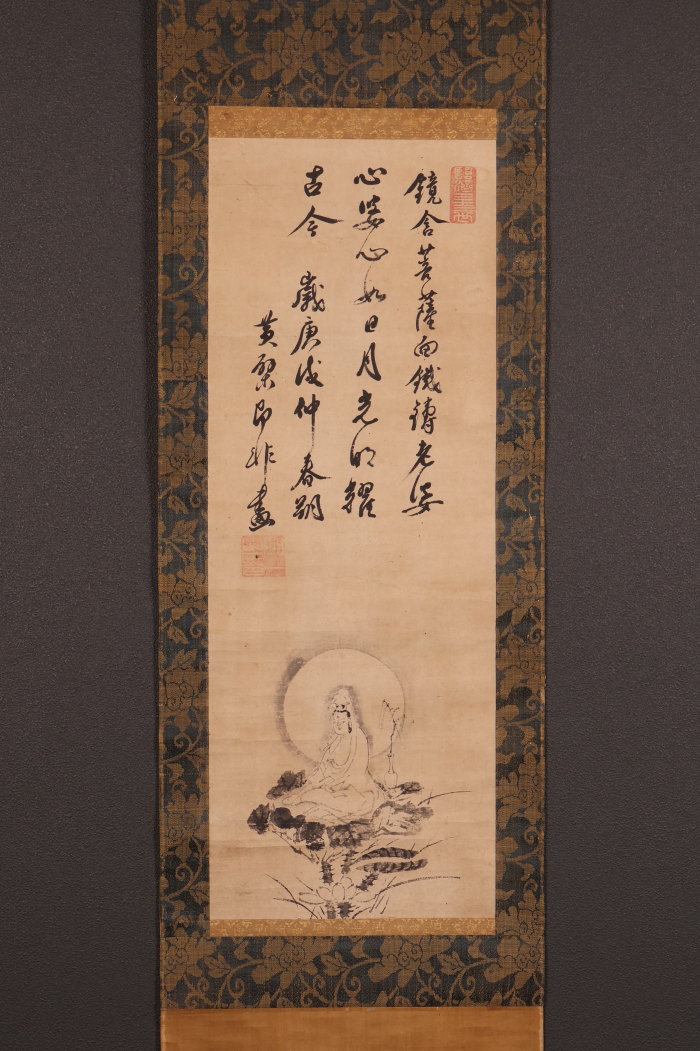 鏡含菩薩面鐵鑄老婆
心婆心如日月光明耀
古今 歲庚戌仲春朔
黃檗即非畫